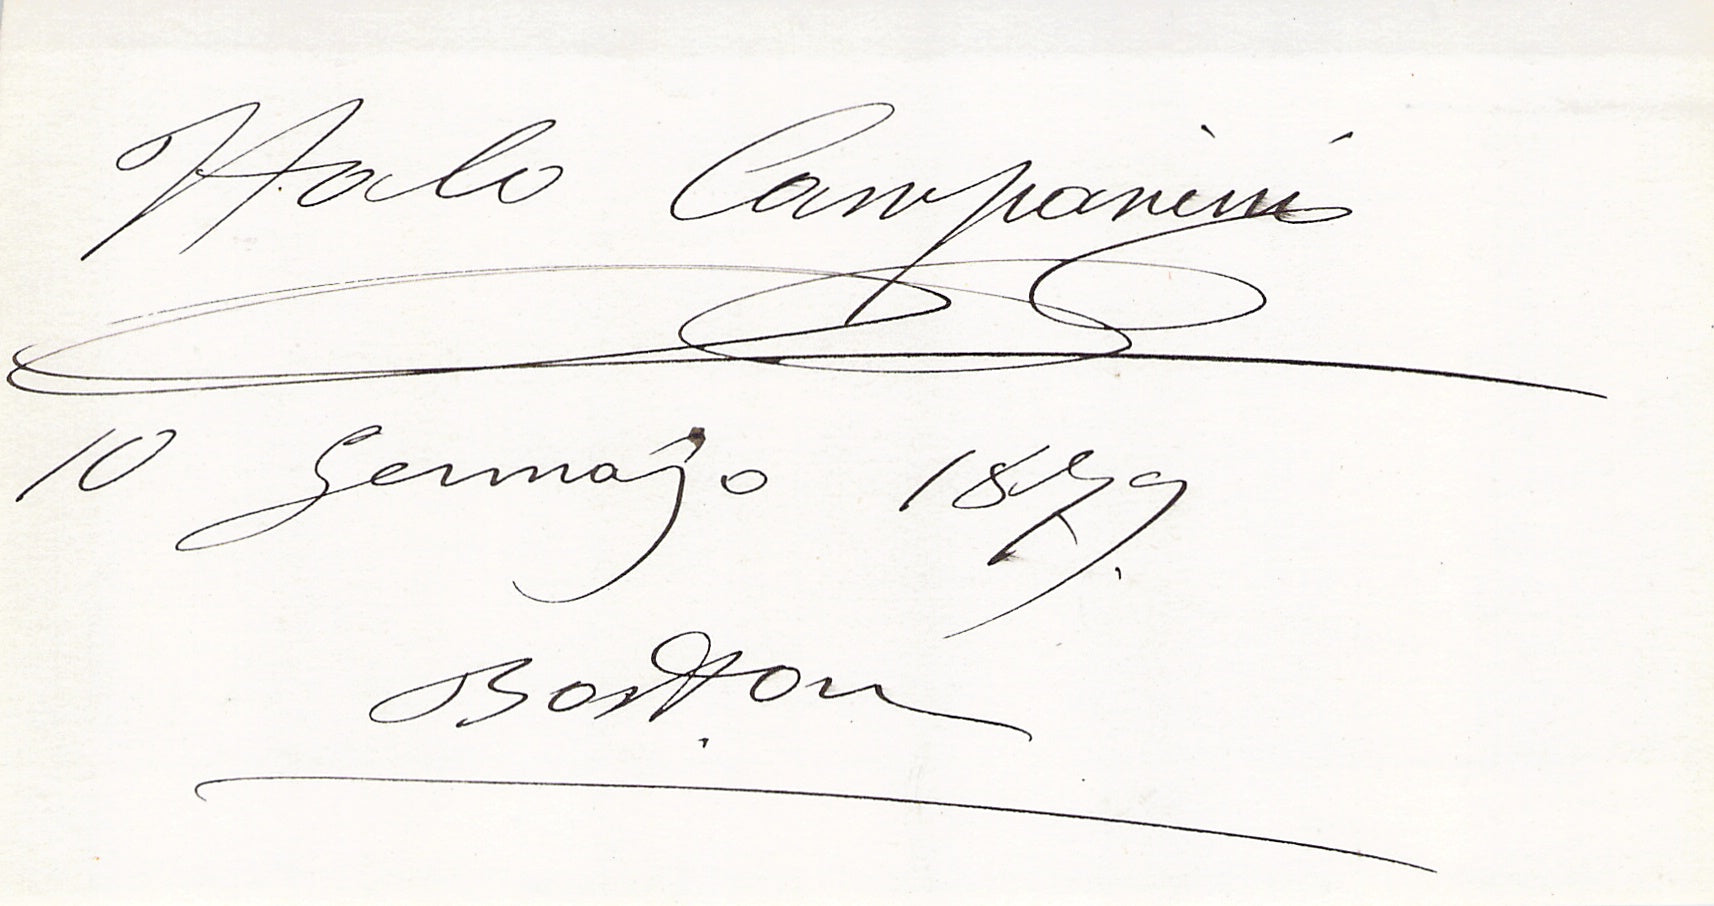 Italo Campanini
10 Gennajo 1879.
Boston